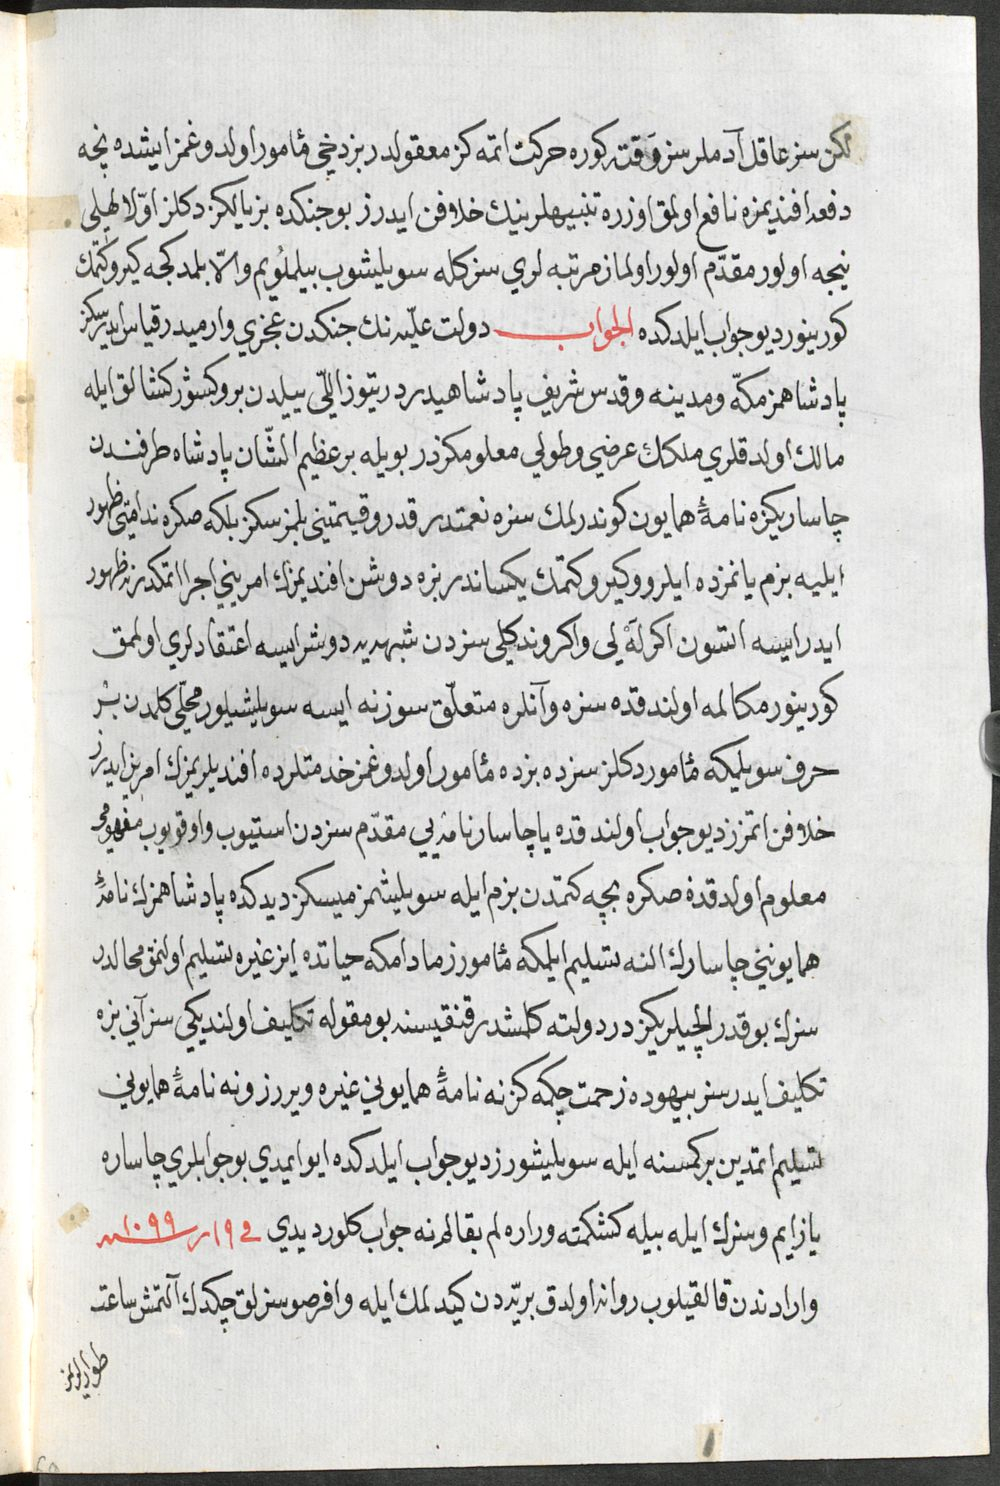 لكن سز عاقل آدملر سز وقته كوره حركت اتمه كز معقولدر بز دخي مأمور اولدوغمز ايشده نچه
دفعه افنديمزه نافع اولمق اوزره تنبيهلرينك خلافن ايدرز بو جنكده بز يالكز دكلز اوّلا لهلى
نيجه اولور مقدّم اولور اولماز مرتبه لري سزكله سويليشوب بيلملويم والّا بلمدكجه كيرو كتمك
كورينور ديو جواب ايلدكده الجواب دولت عليّه نك جنكدن عجزي وارميدر قياس ايدرسكز
پادشاهمز مكّه ومدينه وقدس شريف پادشاهيدر درتيوز اللّي ييلدن برو كسوركشالق ايله
مالك اولدقلري ملكك عرضي وطولي معلومكزدر بويله بر عظيم الشّان پادشاه طرفندن
چاساريكزه نامۀ همايون كوندرلمك سزه نعمتدر قدر وقيمتيني بلمزسكز بلكه صكره ندامتي ظهور
ايليه بزم يانمزده ايلرو وكيرو كتمك يكساندر بزه دوشن افنديمزك امريني اجرا اتمكدر نه ظهور
ايدر ايسه السون اكر لهلى واكر ونديكلى سزدن شبهه يه دوشر ايسه اعتقادلري اولمق
كورينور مكالمه اولندقده سزه وآنلره متعلّق سوز نه ايسه سويليشيلور محلّي كلمدن بر
حرف سويلمكه مأمور دكلز سزده بزده مأمور اولدوغمز خدمتلرده افنديلريمزك امرين ايدرز
خلافن اتمزز ديو جواب اولندقده يا چاسار نامه يي مقدّم سزدن استيوب واوقويوب مفهومى
معلوم اولدقدن صكره بچه كتمدن بزم ايله سويليشمزميسكز ديدكده پادشاهمزك نامۀ
همايونيني چاسارك النه تسليم ايلمكه مأمورز مادامكه حياتده ايز غيره تسليم اولنمق محالدر
سزك بو قدر ايلچيلريكز در دولته كلمشدر قنقيسنه بو مقوله تكليف اولنديكي سز آني بزه
تكليف ايدرسز بيهوده زحمت چكمه كز نه نامۀ همايوني غيره ويررز ونه نامۀ همايوني
تسليم اتمدين بر كمسنه ايله سويليشورز ديو جواب ايلدكده ايو ايمدي بو جوابلري چاساره
يازايم وسزك ايله بيله كشكمته وراره لم بقالم نه جواب كلور ديدي في ١٩ ر سنه ١٠٩٩
وارادندن قالقيلوب روانه اولدق بريّه دن كيدلمك ايله وافر صوسزلق چكدك آلتمش ساعت
طوارلريمز